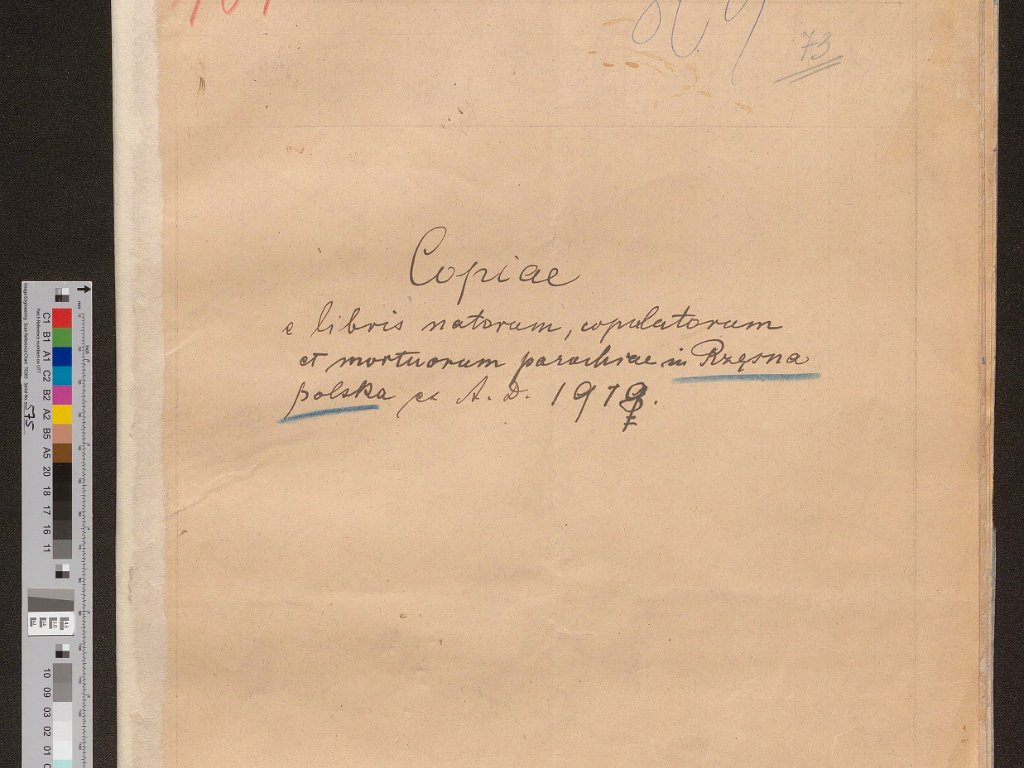 73
Copiae
e libris natorum, copulatorum
et mortuorum parochiae in Rzęsna
polska ex A. D. 1919.
575
C1 B1 A1 C2 B2 A2 B5 A5 20 18 17 16 11
10 09 03 02 01